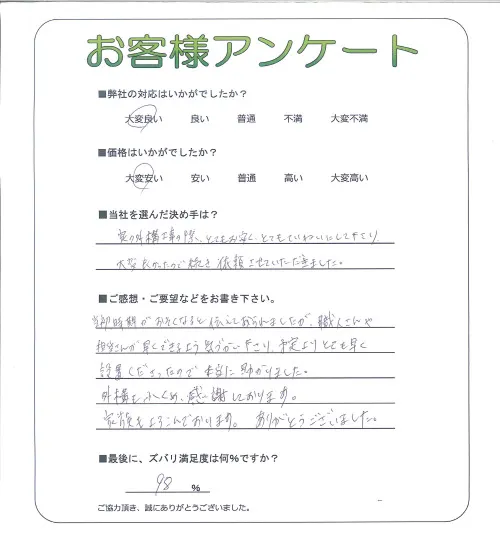 お客様アンケート
■弊社の対応はいかがでしたか？
大変良い　良い　普通　不満　大変不満
■価格はいかがでしたか？
大変安い　安い　普通　高い　大変高い
■当社を選んだ決め手は？
外構工事の際、とてもお安く、とてもていねいにして下さり
大変良かったので続き依頼させていただきました。
■ご感想・ご要望などをお書き下さい。
時期がおそくなると伝えておられましたが、職人さんや
担当さんが早くできるよう気づかい下さり、予定よりとても早く
設置くださったので本当に助かりました。
外構もふくめ、感謝しております。
家族もよろこんでおります。ありがとうございました。
■最後に、ズバリ満足度は何%ですか？
98 %
ご協力頂き、誠にありがとうございました。